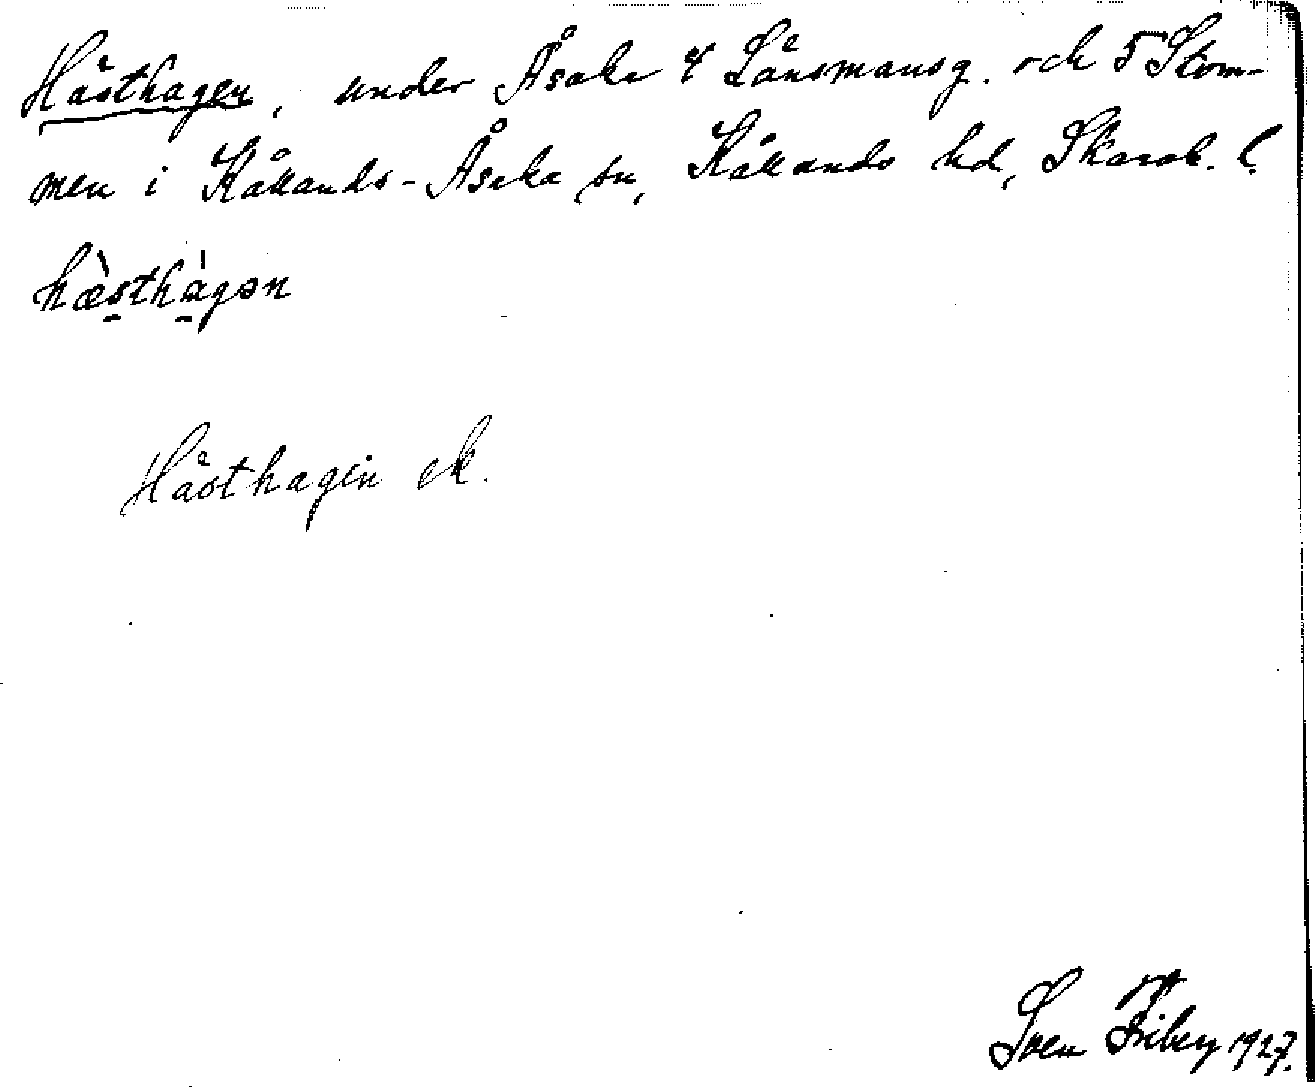 Hästhagen, under Åsaka 4 Länsmansg. och 5 Stom-
men i Kållands-Åsaka sn, Kållands hd, Skarab. l.
hæ̀sthàgən
Hästhagen ek.
Sven Friberg 1927.